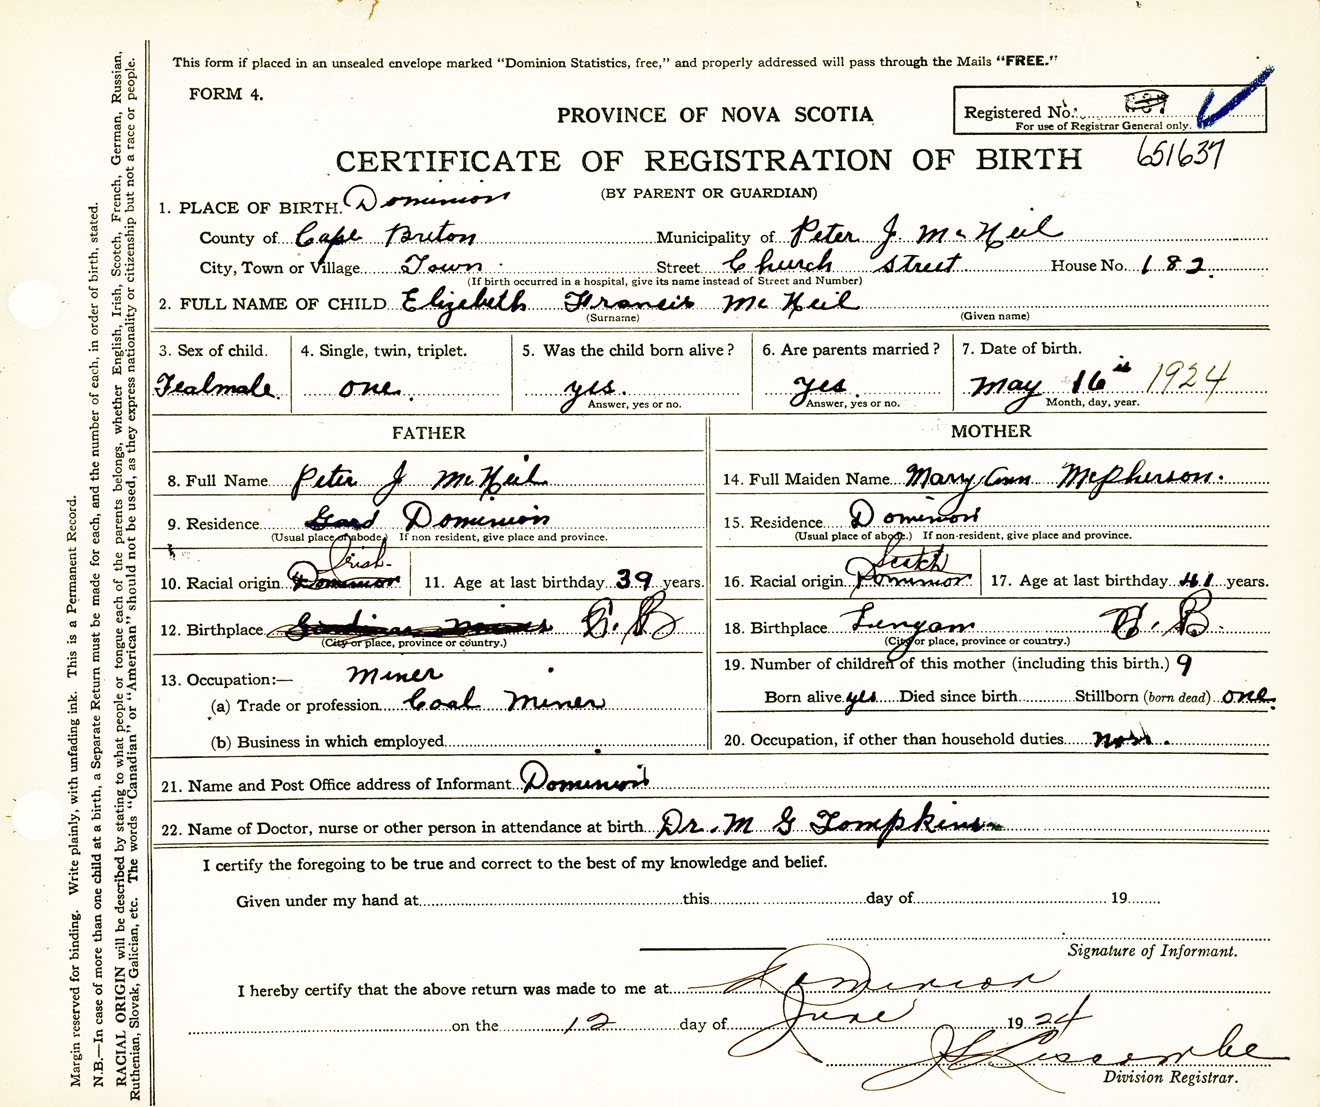 This form if placed in an unsealed envelope marked "Dominion Statistics, free," and properly addressed will pass through the Mails "FREE."
FORM 4.
PROVINCE OF NOVA SCOTIA
Registered No.
For use of Registrar General only.
651637
CERTIFICATE OF REGISTRATION OF BIRTH
(BY PARENT OR GUARDIAN)
1. PLACE OF BIRTH. Dominion
County of Cape Breton Municipality of Peter J McNeil
City, Town or Village Town Street Church Street House No. 182
(If birth occurred in a hospital, give its name instead of Street and Number)
2. FULL NAME OF CHILD Elizebeth Francis McNeil
(Surname) (Given name)
3. Sex of child. 4. Single, twin, triplet. 5. Was the child born alive? 6. Are parents married? 7. Date of birth.
Fealmale. one. yes. yes May 16 1924
Answer, yes or no. Answer, yes or no. Month, day, year.
FATHER MOTHER
8. Full Name Peter J McNeil 14. Full Maiden Name Mary Ann McPherson.
9. Residence Dominion 15. Residence Dominion
(Usual place of abode.) If non resident, give place and province. (Usual place of abode.) If non-resident, give place and province.
Irish Scotch
10. Racial origin Dominion 11. Age at last birthday 39 years. 16. Racial origin Dominion 17. Age at last birthday 41 years.
12. Birthplace C. B 18. Birthplace C. B.
(City or place, province or country.) (City or place, province or country.)
19. Number of children of this mother (including this birth.) 9
13. Occupation:— Miner
(a) Trade or profession Coal Miner Born alive yes Died since birth Stillborn (born dead) one.
(b) Business in which employed 20. Occupation, if other than household duties
21. Name and Post Office address of Informant Dominion
22. Name of Doctor, nurse or other person in attendance at birth Dr. M G Tompkins
I certify the foregoing to be true and correct to the best of my knowledge and belief.
Given under my hand at this day of 19
Signature of Informant.
I hereby certify that the above return was made to me at Dominion
on the 12 day of June 1924
J Liscombe
Division Registrar.
Margin reserved for binding. Write plainly, with unfading ink. This is a Permanent Record.
N.B.—In case of more than one child at a birth, a Separate Return must be made for each, and the number of each, in order of birth, stated.
RACIAL ORIGIN will be described by stating to what people or tongue each of the parents belongs, whether English, Irish, Scotch, French, German, Russian,
Ruthenian, Slovak, Galician, etc. The words "Canadian" or "American" should not be used, as they express nationality or citizenship but not a race or people.